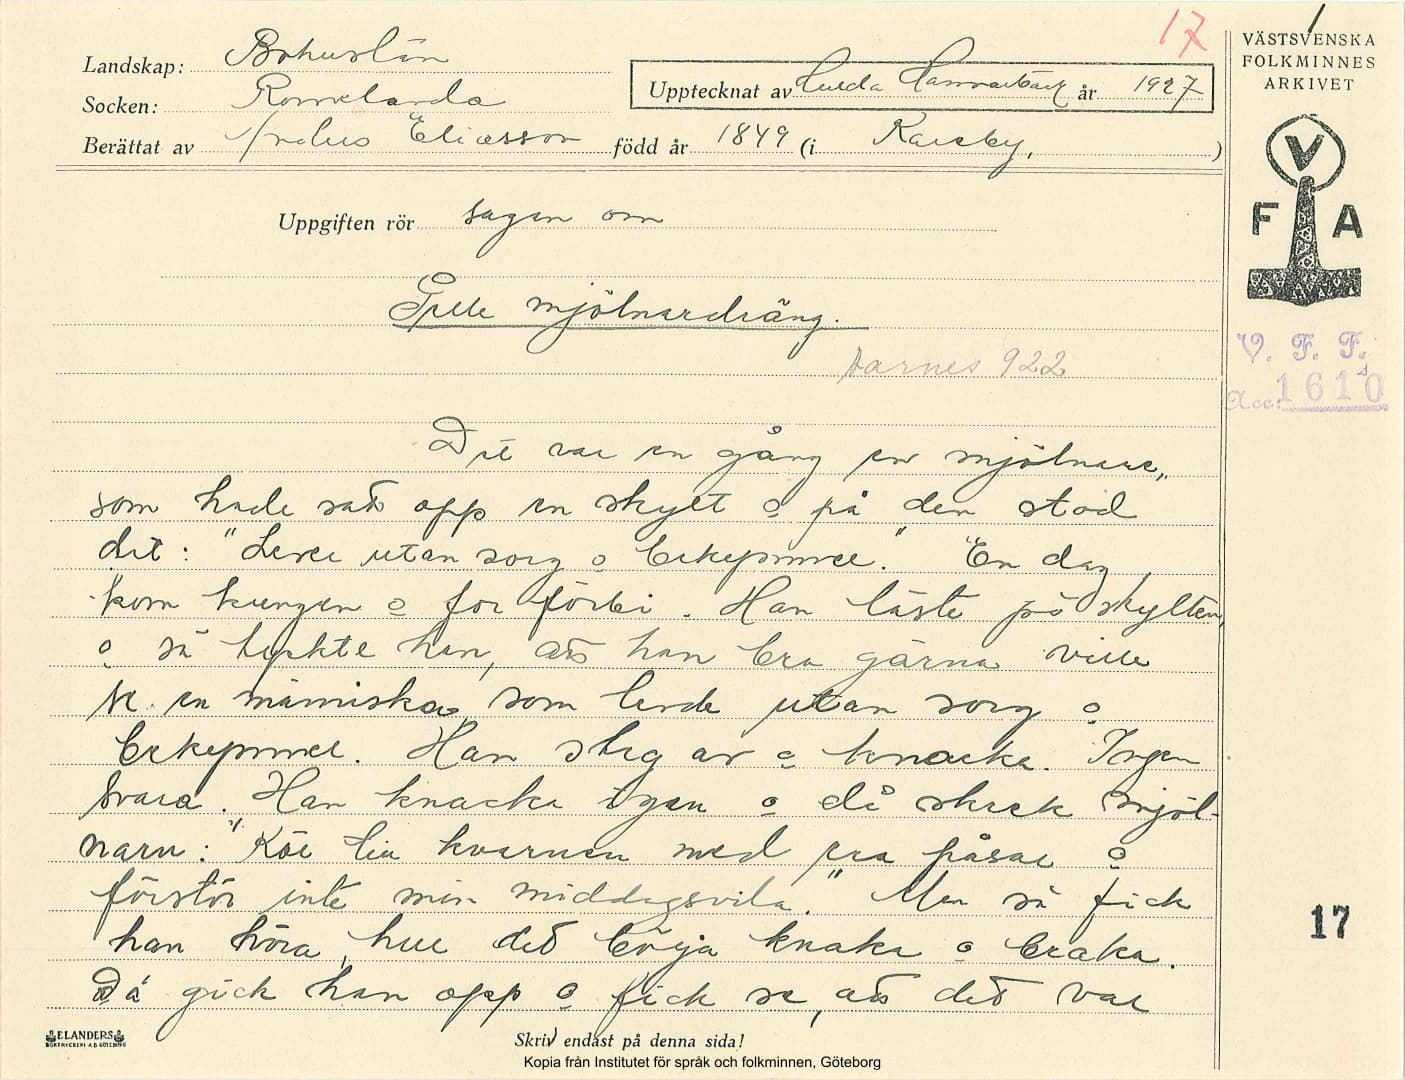 17
Landskap: Bohuslän
Socken: Romelanda
Berättat av Eliasson född år 1849 (i Kareby, )
Upptecknat av Hulda Hammarbäck år 1927
VÄSTSVENSKA
FOLKMINNES
ARKIVET
V
F A
Uppgiften rör sagan om
Pelle mjölnardräng.
Aarnes 922
V. F. F.
Acc: 1610
Det var en gång en mjölnare,
som hade satt opp en skylt o på den stod
det: "Lever utan sorg o bekymmer." En dag
kom kungen o for förbi. Han läste på skylten,
o så tyckte han, att han bra gärna ville
se en människa, som levde utan sorg o
bekymmer. Han steg av o knacka. Ingen
svara. Han knacka igen o då skrek mjöl-
narn: "Kör till kvarnen med era påsar o
förstör inte min middagsvila." Men så fick
han höra, hur det börja knaka o braka.
Då gick han opp o fick se, att det var
17
ELANDERS
BOKTRYCKERI A.B. GÖTEBORG
Skriv endast på denna sida!
Kopia från Institutet för språk och folkminnen, Göteborg